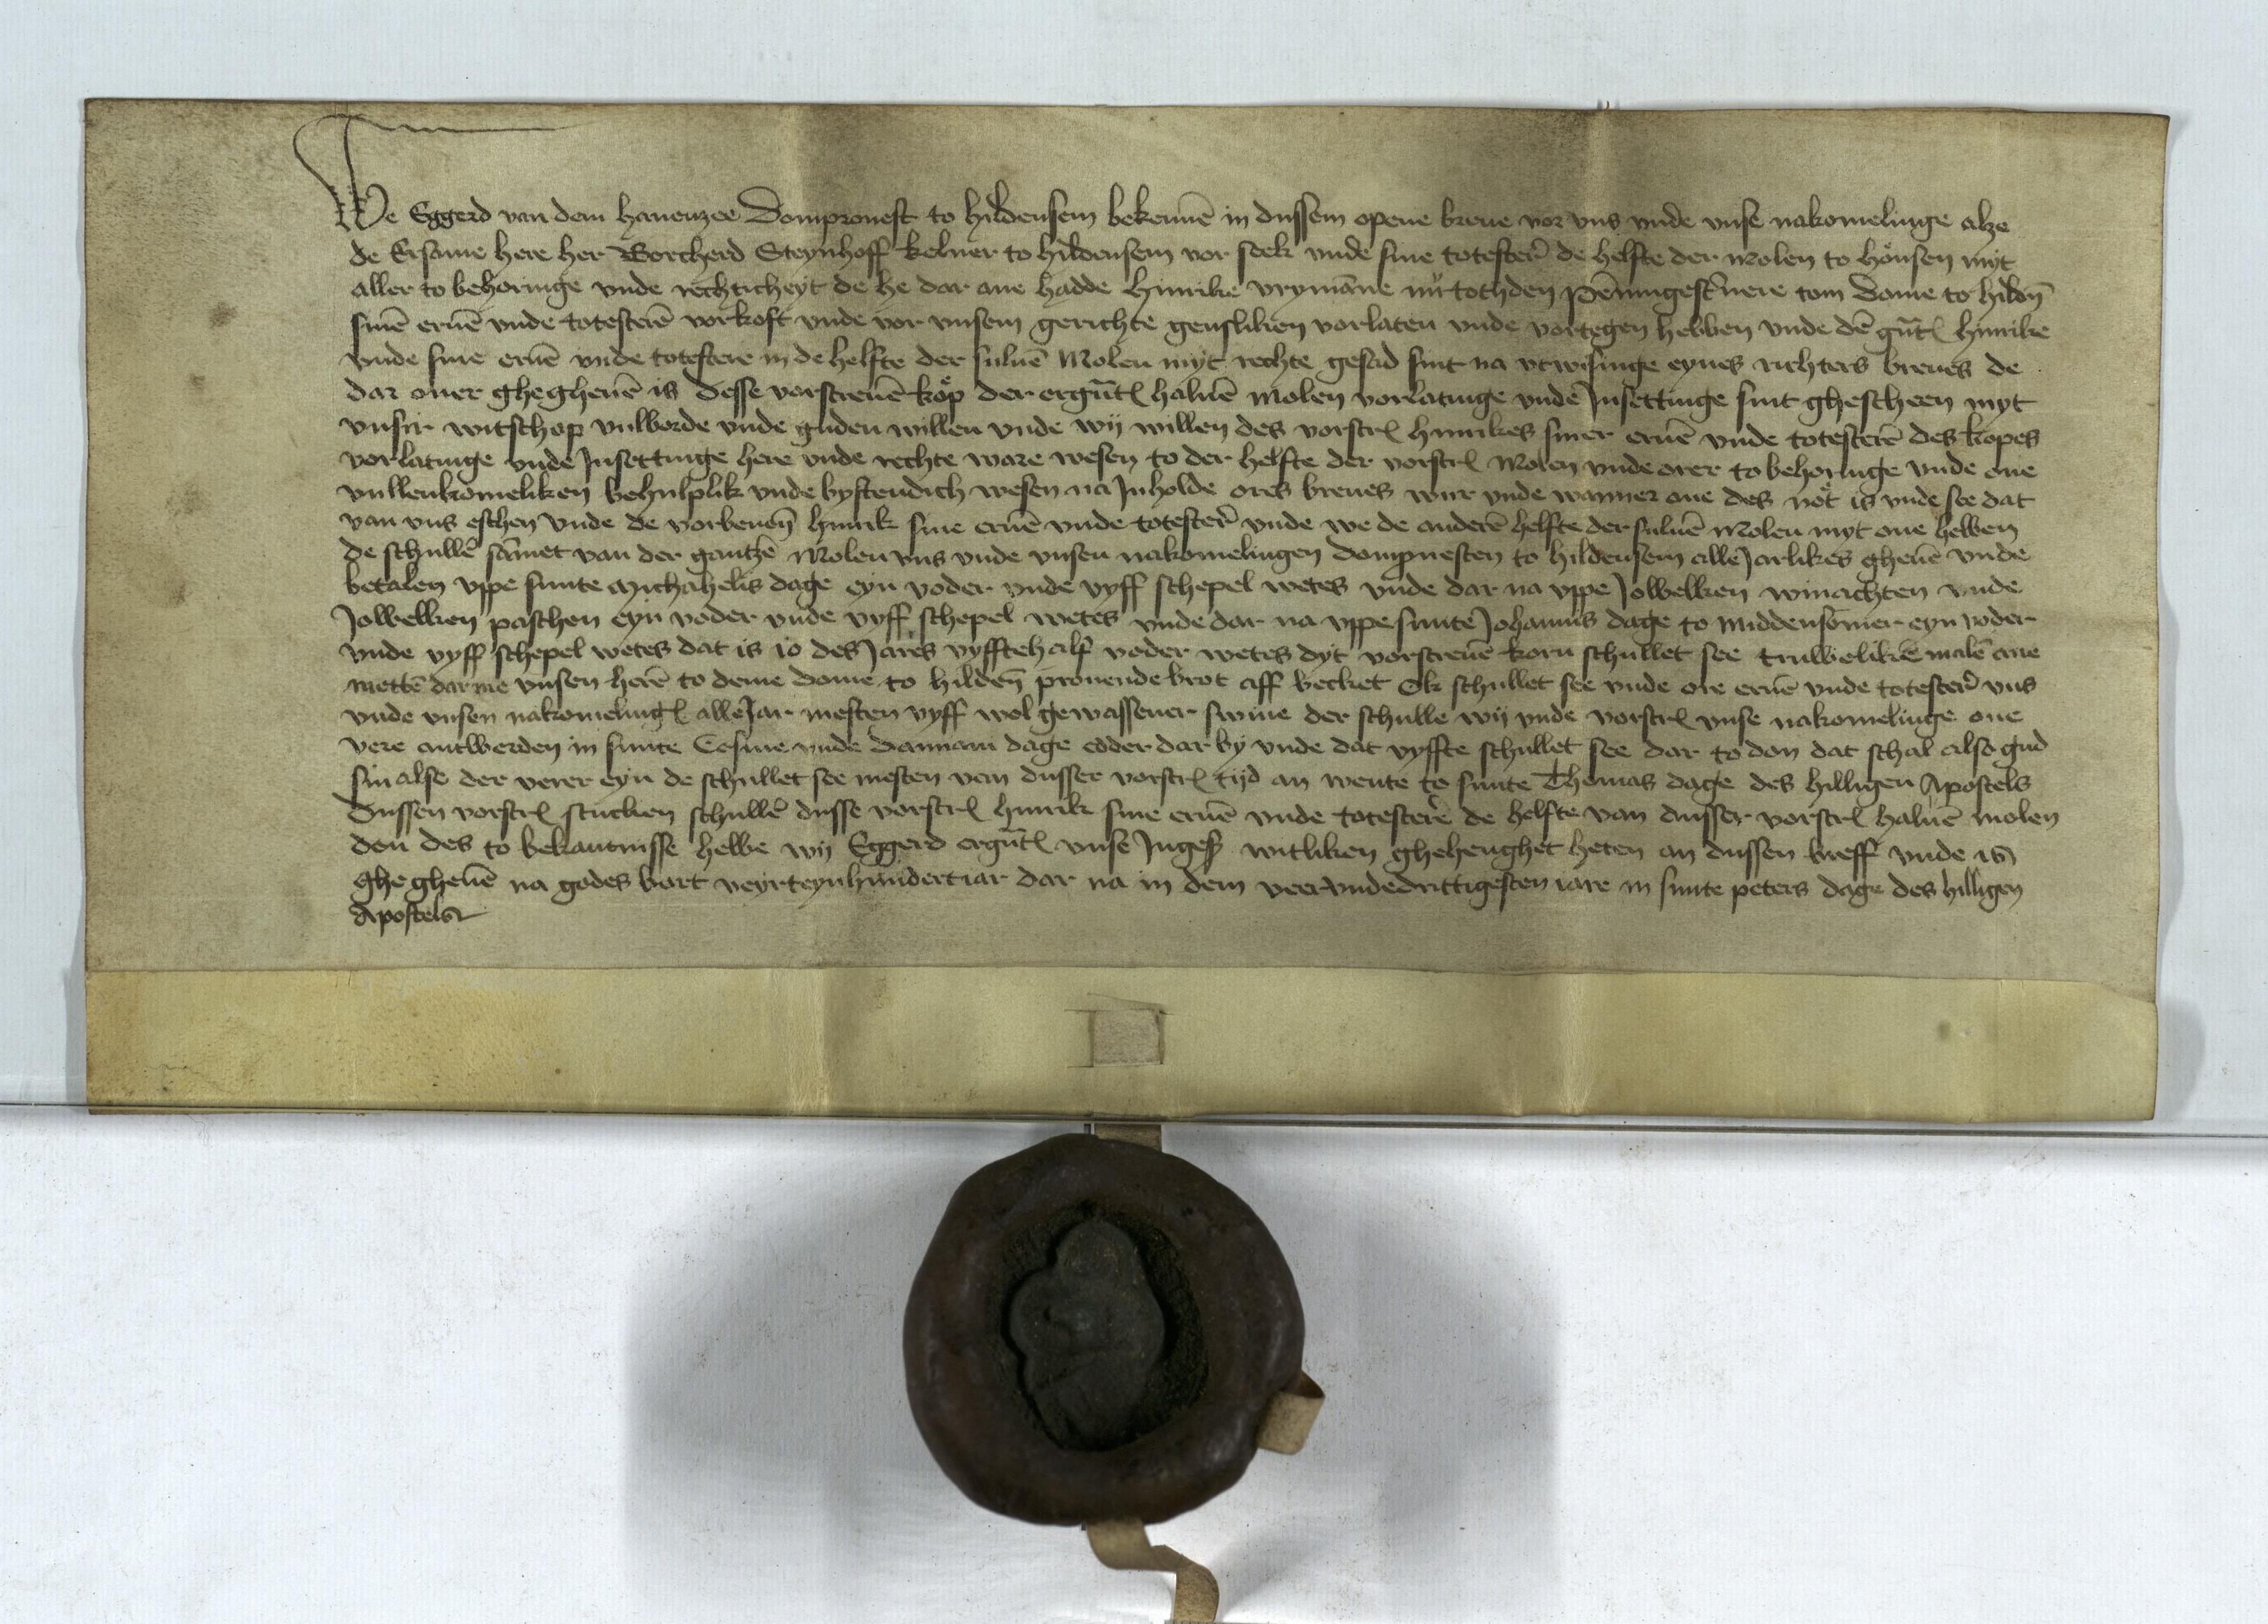 We Eggerd van dem hanenzee Domprouest to hildensem bekennē in dussem opene breue vor vns vnde vnse nakomelinge alze
de Ersame here her Borcherd Steynhoff kelner to hildensem vor seek vnde sine totesterꝰ de helfte der molen to hönsen myt
aller to behoringe vnde rechticheyt de he dar ane hadde hinrike vrymāne nů tochden pēningestꝰuere tom Dome to hildēn̄
sinē eruē vnde totesterē vorkoft vnde vor vnsem gerichte gensliken vorlaten vnde vortegen hebben vnde dē gn̄tꝭ hinrike
vnde sine eruē vnde totestere in de helfte der suluē Molen myt rechte gesad sint na vtwisinge eynes richters breues de
dar ouer ghegheuē is Desse vorscreuē kŏp der ergn̄tꝭ haluē molen vorlatinge vnde Insettinge sint ghescheen myt
vnsir witschop vulborde vnde guden willen vnde wij willen des vorscrꝭ hinrikes siner eruē vnde totesterē des kopes
vorlatinge vnde Insettinge here vnde rechte ware wesen to der helfte der vorscrꝭ Molen vnde orer to behoringe vnde one
vullenkomeliken behulplik vnde bystendich wesen na Inholde ores breues wur vnde wanner one des nŏt is vnde see dat
van vns eschen vnde de vorbenōn̄ hinrik sine eruē vnde totesterꝰ vnde we de anderē helfte der suluē Molen myt one hebben
de schullē sāmet van der gantzē Molen vns vnde vnsen nakomelingen dompuesten to hildensem alle Jarlikes gheuē vnde
betalen vppe sunte Michahelis dage eyn voder vnde vyff schepel wetes vnde dar na vppe Jowelken winachten vnde
Jowelken paschen eyn voder vnde vyff schepel wetes vnde dar na vppe sunte Johannis dage to middensōmer eyn voder
vnde vyff schepel wetes dat is io des Jares vyfftehalf voder wetes dyt vorscreuē korn schullet see truweliken malē ane
mettē dar me vnsen herē to deme dome to hildēn̄ prouende brot aff becket Ok schullet see vnde ore eruē vnde totesterꝰ vns
vnde vnsen nakomelingꝭ alle Jar mesten vyff wol gewassener swine der schulle wij vnde vorscrꝭ vnse nakomelinge one
vere antwerden in sunte Cosme vnde Damiani dage edder dar by vnde dat vyffte schullet see dar to don dat schal also gud
sin alse der verer eyn de schullet see mesten van dusser vorscrꝭ tijd an wente to sunte Thomas dage des hilligen Apostels
Dussen vorscrꝭ stucken schullē dusse vorscrꝭ hinrik sine eruē vnde totesterē de helfte van dusser vorscrꝭ haluē molen
don des to bekantnisse hebbe wij Eggerd ergn̄tꝭ vnse Ingesꝭ witliken ghehenghet heten an dussen breff vnde is
ghegheuē na godes bort veyrteynhundert iar dar na in dem veervndedrittigesten iare in sunte peters dage des hilligen
Apostels